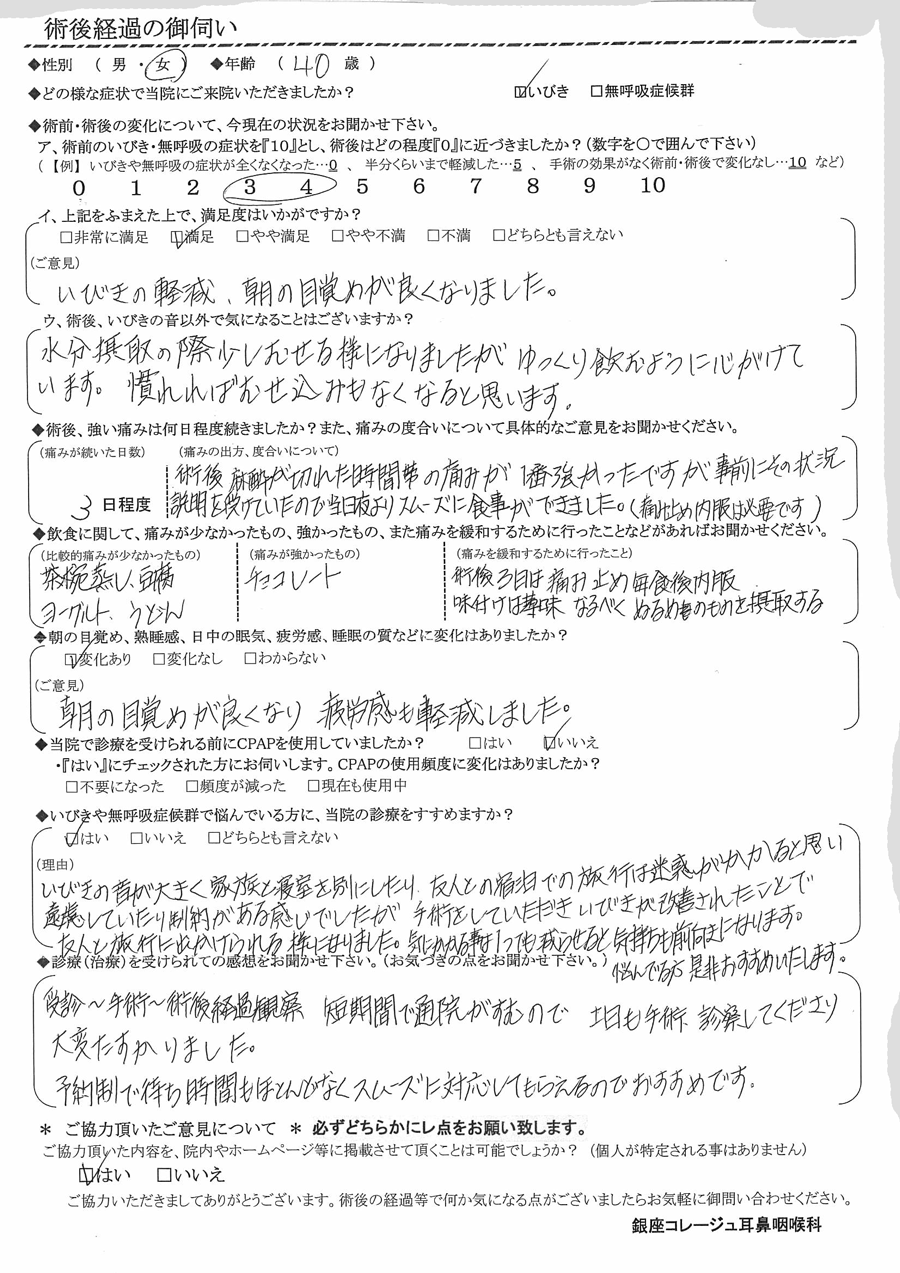 術後経過の御伺い
◆性別 ( 男 ・ 女 ) ◆年齢 ( 40 歳 )
◆どの様な症状で当院にご来院いただきましたか? ☑いびき □無呼吸症候群
◆術前・術後の変化について、今現在の状況をお聞かせ下さい。
ア、術前のいびき・無呼吸の症状を『10』とし、術後はどの程度『0』に近づきましたか?(数字を〇で囲んで下さい)
(【例】 いびきや無呼吸の症状が全くなくなった…0 、 半分くらいまで軽減した…5 、 手術の効果がなく術前・術後で変化なし…10 など)
0 1 2 3 4 5 6 7 8 9 10
イ、上記をふまえた上で、満足度はいかがですか?
□非常に満足 ☑満足 □やや満足 □やや不満 □不満 □どちらとも言えない
(ご意見)
いびきの軽減、朝の目覚めが良くなりました。
ウ、術後、いびきの音以外で気になることはございますか?
水分摂取の際少しむせる様になりましたが ゆっくり飲むように心がけて
います。慣れればむせ込みもなくなると思います。
◆術後、強い痛みは何日程度続きましたか?また、痛みの度合いについて具体的なご意見をお聞かせください。
(痛みが続いた日数) (痛みの出方、度合いについて)
術後 麻酔が切れた時間帯の痛みが1番強かったですが 事前にその状況
3 日程度 説明を受けていたので当日夜よりスムーズに食事ができました。(痛み止め内服は必要です)
◆飲食に関して、痛みが少なかったもの、強かったもの、また痛みを緩和するために行ったことなどがあればお聞かせください。
(比較的痛みが少なかったもの) (痛みが強かったもの) (痛みを緩和するために行ったこと)
茶椀蒸し、豆腐 チョコレート 術後3日は痛み止め毎食後内服
ヨーグルト、うどん 味付けは薄味 なるべく ぬるめのものを摂取する
◆朝の目覚め、熟睡感、日中の眠気、疲労感、睡眠の質などに変化はありましたか?
☑変化あり □変化なし □わからない
(ご意見)
朝の目覚めが良くなり 疲労感も軽減しました。
◆当院で診療を受けられる前にCPAPを使用していましたか? □はい ☑いいえ
・『はい』にチェックされた方にお伺いします。CPAPの使用頻度に変化はありましたか?
□不要になった □頻度が減った □現在も使用中
◆いびきや無呼吸症候群で悩んでいる方に、当院の診療をすすめますか?
☑はい □いいえ □どちらとも言えない
(理由)
いびきの音が大きく家族と寝室を別にしたり、友人との宿泊での旅行は迷惑がかかると思い
遠慮していたり制約がある感じでしたが 手術をしていただき いびきが改善されたことで
友人と旅行に出かけられる様になりました。気にかかる事は1つでも減らせると気持ちも前向きになります。
悩んでる方 是非おすすめいたします。
◆診療(治療)を受けられての感想をお聞かせ下さい。(お気づきの点をお聞かせ下さい。)
受診〜手術〜術後経過観察 短期間で通院がすむので 土日も手術、診察してくださり
大変たすかりました。
予約制で待ち時間もほとんどなくスムーズに対応してもらえるのでおすすめです。
＊ ご協力頂いたご意見について ＊ 必ずどちらかにレ点をお願い致します。
ご協力頂いた内容を、院内やホームページ等に掲載させて頂くことは可能でしょうか? (個人が特定される事はありません)
☑はい □いいえ
ご協力いただきましてありがとうございます。術後の経過等で何か気になる点がございましたらお気軽に御問い合わせください。
銀座コレージュ耳鼻咽喉科